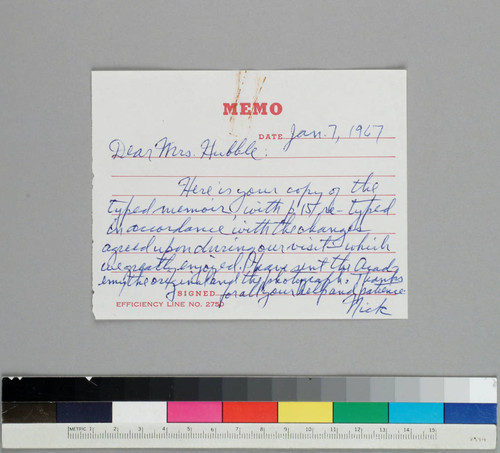 MEMO
DATE Jan. 7, 1967
Dear Mrs. Hubble:
Here is your copy of the
typed memoir, with p 15 re-typed
in accordance with the changes
agreed upon during our visit which
we greatly enjoyed. I have sent the Acad-
emy the original and the photographs. Thanks
SIGNED for all your help and patience
EFFICIENCY LINE NO. 2750
Nick
METRIC 1 2 3 4 5 6 7 8 9 10 11 12 13 14 15